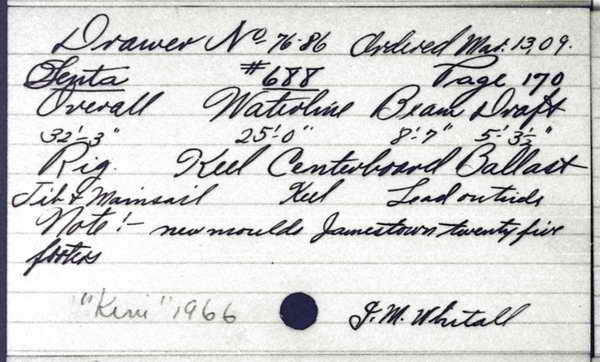 Drawer No 76-86 Ordered Mar. 13, 09.
Senta #688 Page 170
Overall Waterline Beam Draft
32'-3" 25'-0" 8'-7" 5'-3½"
Rig. Keel Centerboard Ballast
Jib & Mainsail Keel Lead outside
Note:- new moulds Jamestown twenty five
footers
"Kiwi" 1966 J. M. Whitall